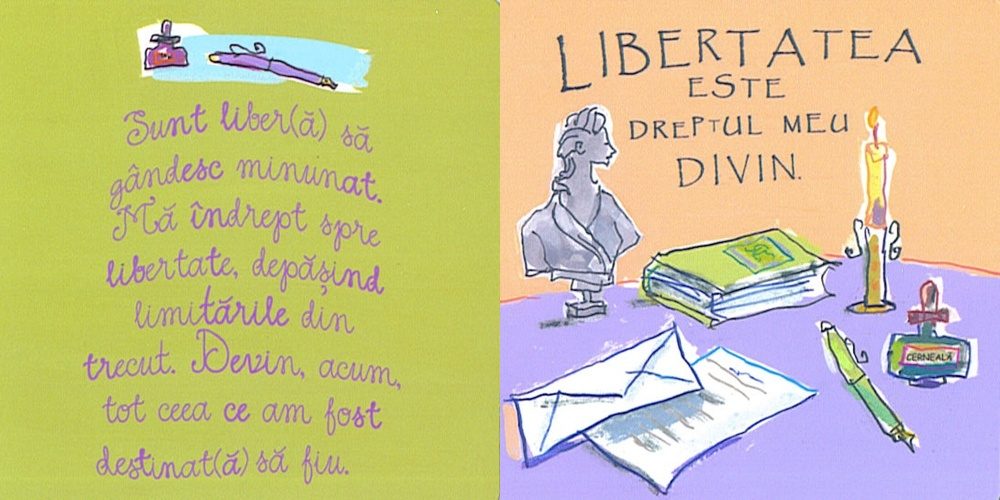 Sunt liber(ă) să
gândesc minunat.
Mă îndrept spre
libertate, depășind
limitările din
trecut. Devin, acum,
tot ceea ce am fost
destinat(ă) să fiu.
LIBERTATEA
ESTE
DREPTUL MEU
DIVIN.
CERNEALĂ